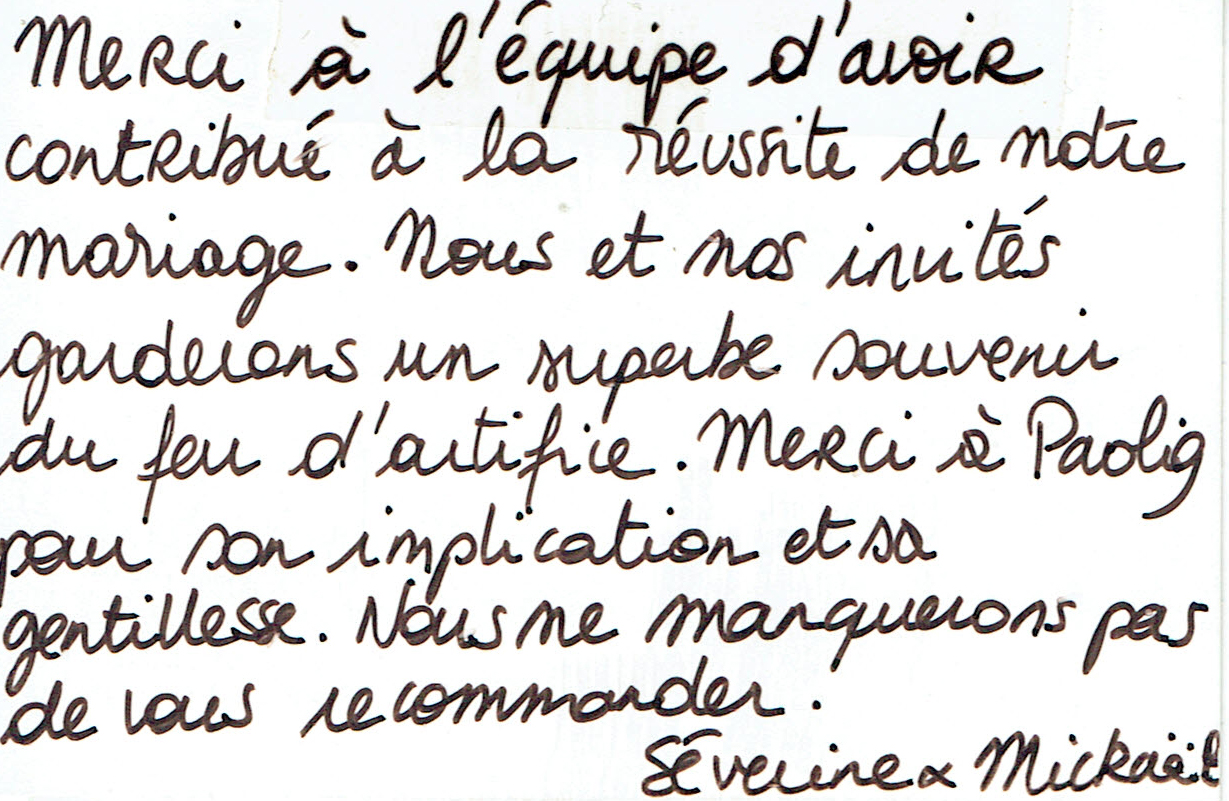 Merci à l'équipe d'avoir
contribué à la réussite de notre
mariage. Nous et nos invités
garderons un superbe souvenir
du feu d'artifice. Merci à Paolig
pour son implication et sa
gentillesse. Nous ne manquerons pas
de vous recommander.
Séverine & Mickaël